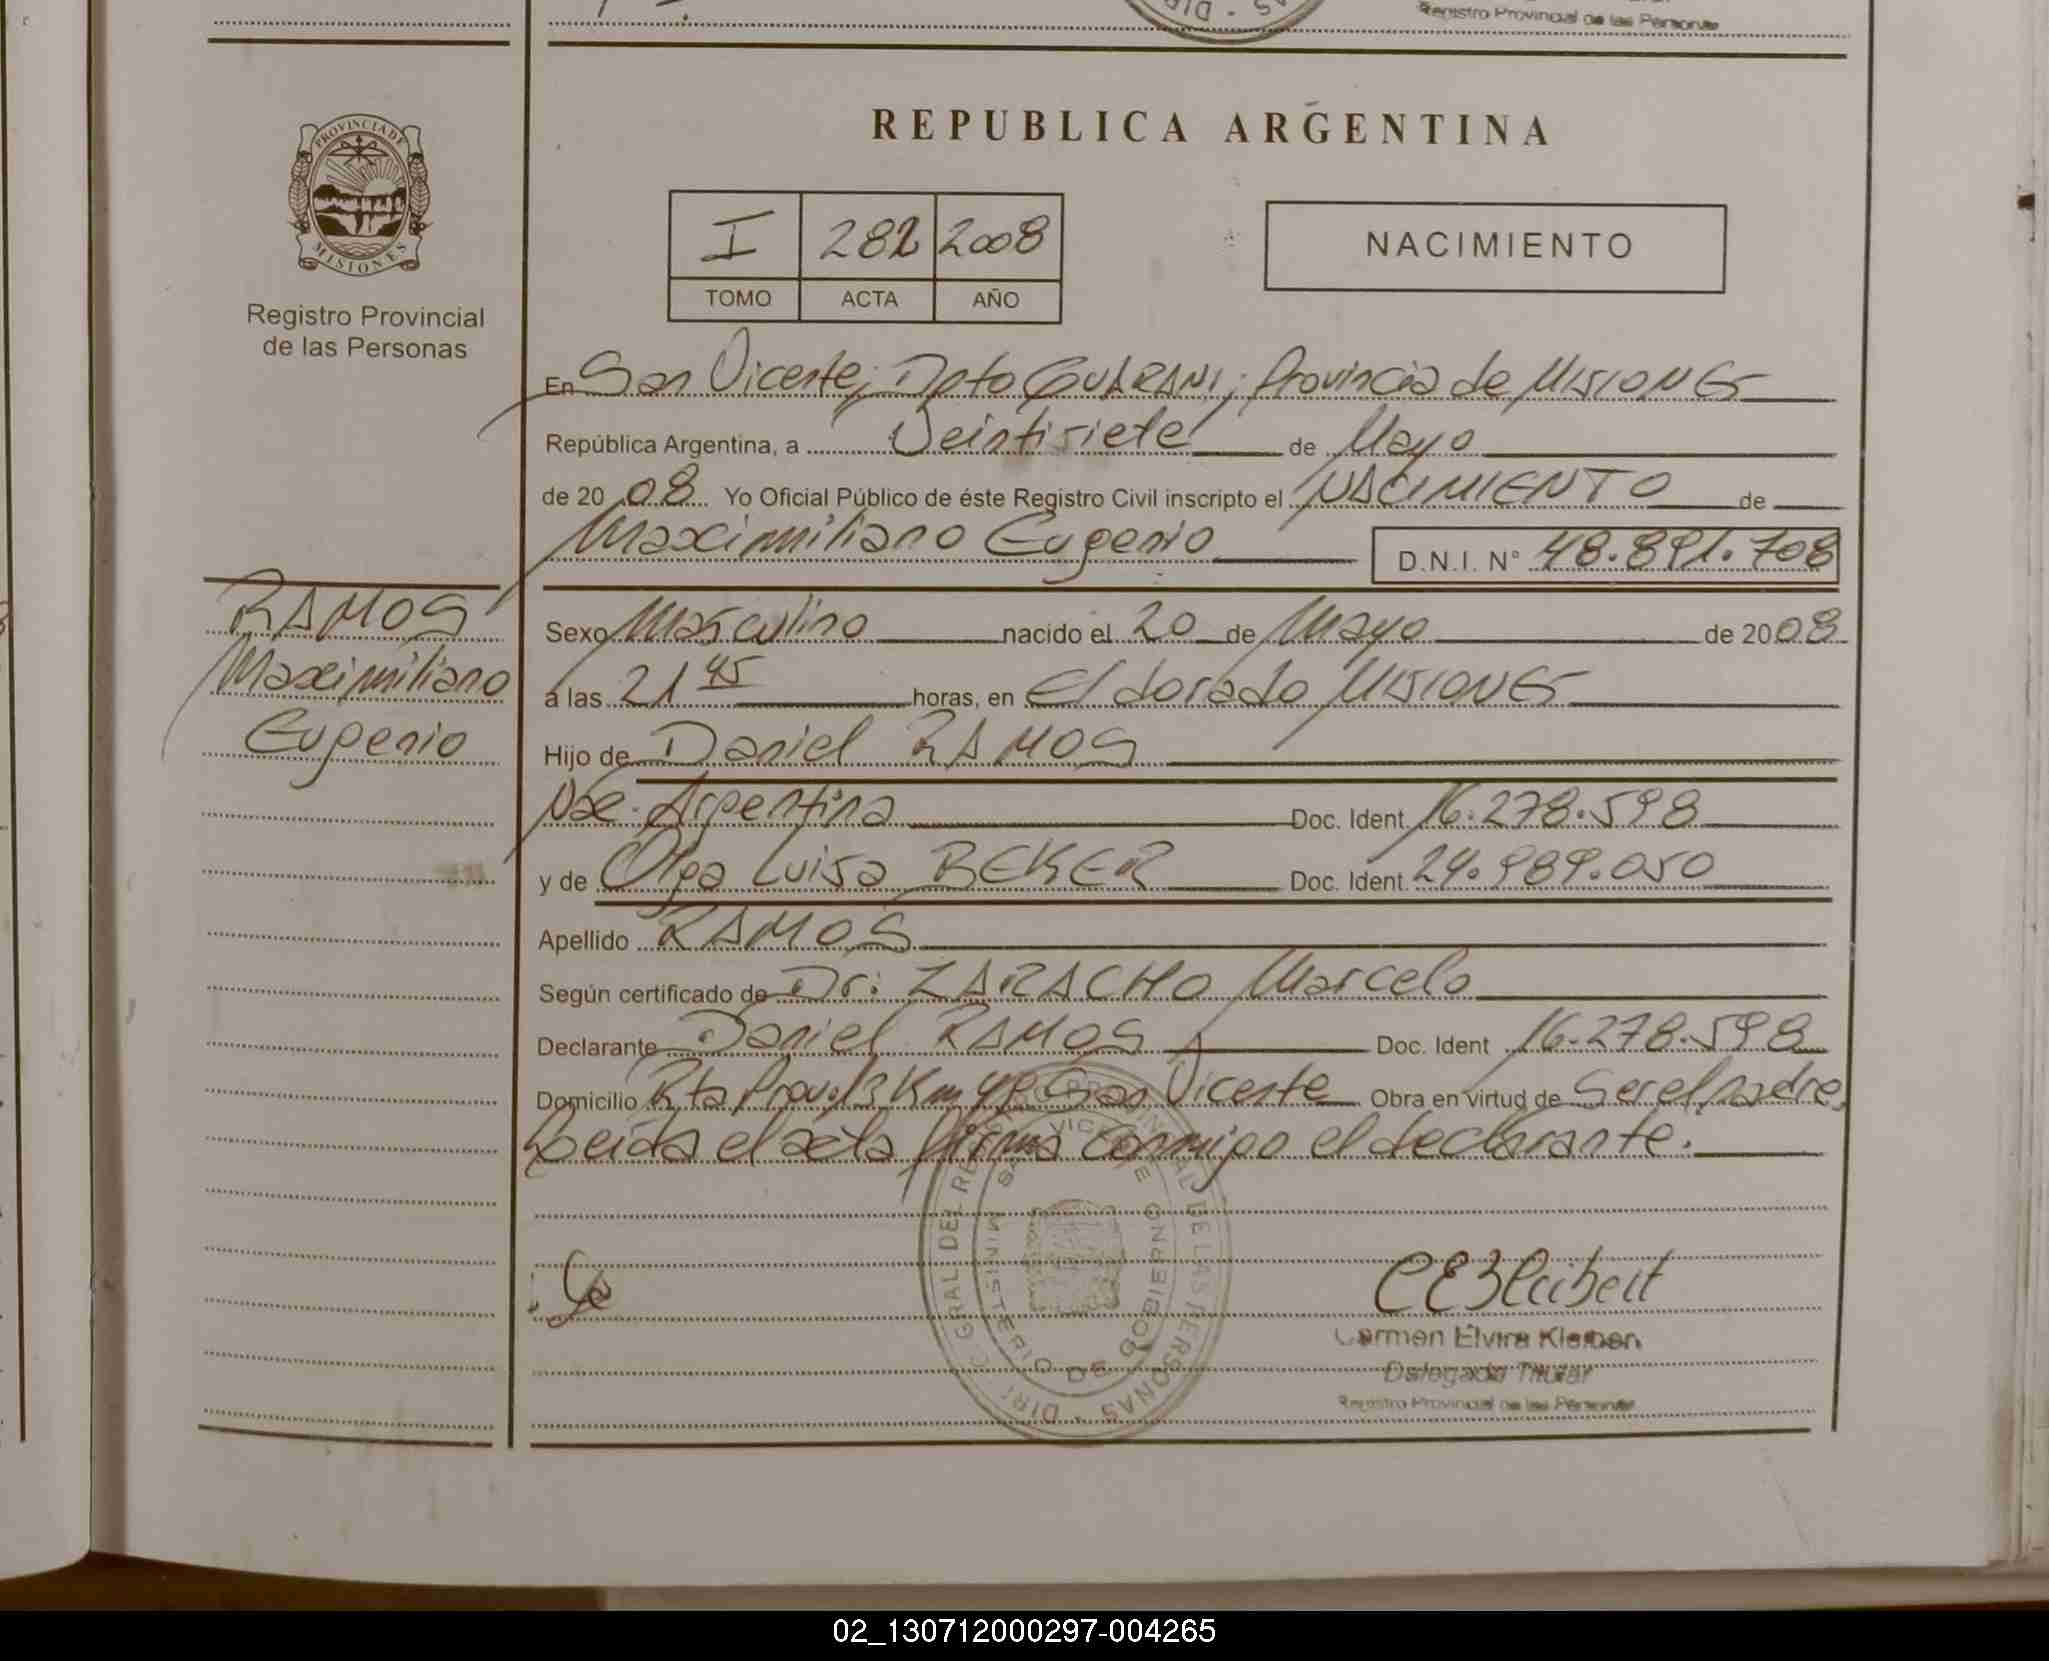 Registro Provincial de las Personas
PROVINCIA DE MISIONES
Registro Provincial
de las Personas
REPUBLICA ARGENTINA
I 282 2008
TOMO ACTA AÑO
NACIMIENTO
En San Vicente, Dpto GUARANI, Provincia de MISIONES
República Argentina, a Veintisiete de Mayo
de 2008 Yo Oficial Público de éste Registro Civil inscripto el NACIMIENTO de
Maximiliano Eugenio D.N.I. N° 48.891.708
RAMOS
Maximiliano
Eugenio
Sexo Masculino nacido el 20 de Mayo de 2008
a las 21 45 horas, en Eldorado MISIONES
Hijo de Daniel RAMOS
Nac. Argentina Doc. Ident. 16.278.598
y de Olga Luisa BEKER Doc. Ident. 24.989.050
Apellido RAMOS
Según certificado de Dr: ZARACHO Marcelo
Declarante Daniel RAMOS Doc. Ident 16.278.598
Domicilio Rta Prov. 13 Km 48 San Vicente Obra en virtud de Ser el padre.
Leida el acta firma conmigo el declarante.
DIRECC. GRAL DEL REG. PROVINCIAL DE LAS PERSONAS
SAN VICENTE
MINISTERIO DE GOBIERNO
Carmen Elvira Kleiben
Delegada Titular
Registro Provincial de las Personas
02_130712000297-004265